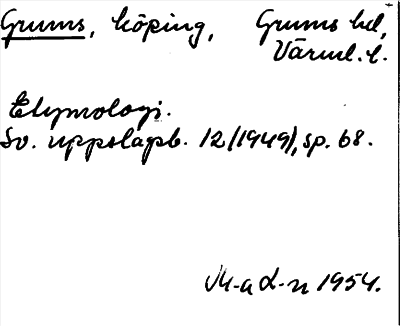 Grums, köping, Grums hd,
Värml. l.
Etymologi.
Sv. uppslagsb. 12 (1949), sp. 68.
M-a d-n 1954.